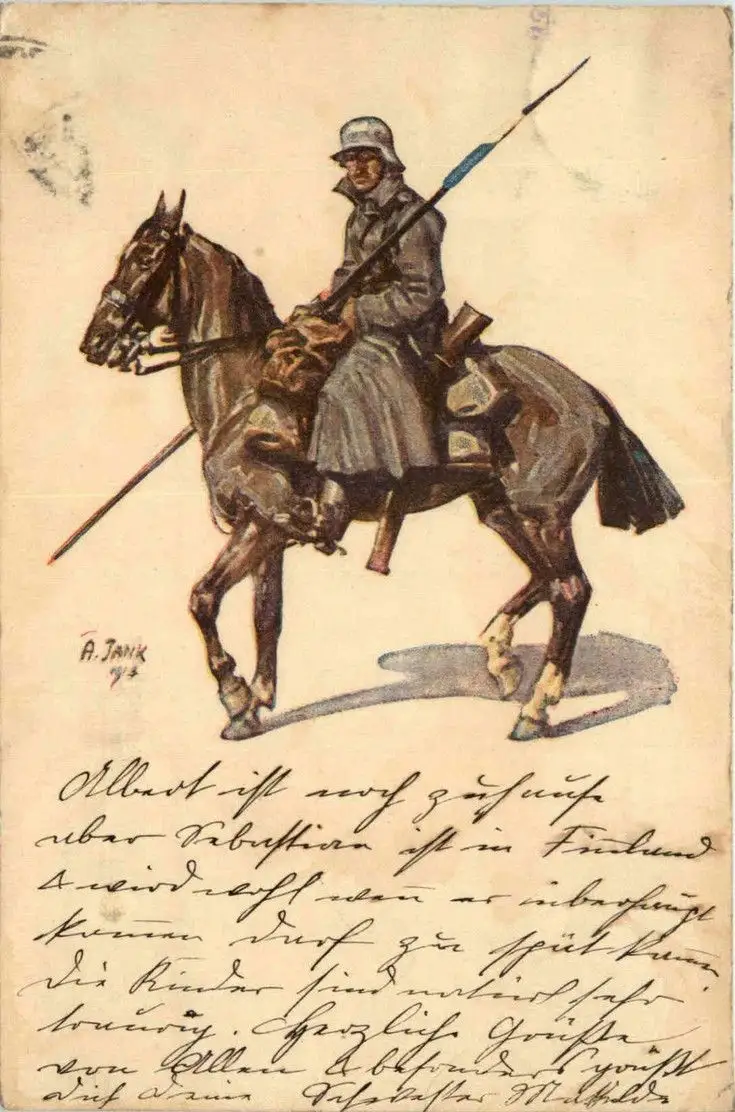 A. JANK
Albert ist noch zuhause
aber Sebastian ist in Finland
& wird wohl wen̄ er überhaupt
kom̄en darf zu spät kom̄en.
Die Kinder sind natürl sehr
traurig. Herzliche Grüße
von Allen & besonders grüßt
dich Deine Schwester Mathilde